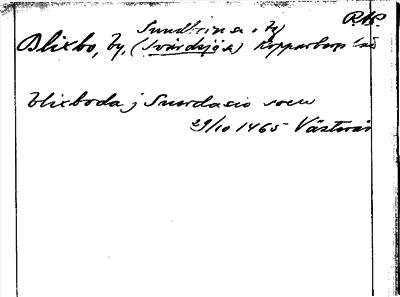 RAP
Sundbrinsa, by
Blixbo, by, (Svärdsjö s) Kopparbergs län
blixboda j Suordasio soen
29/10 1465 Västerås